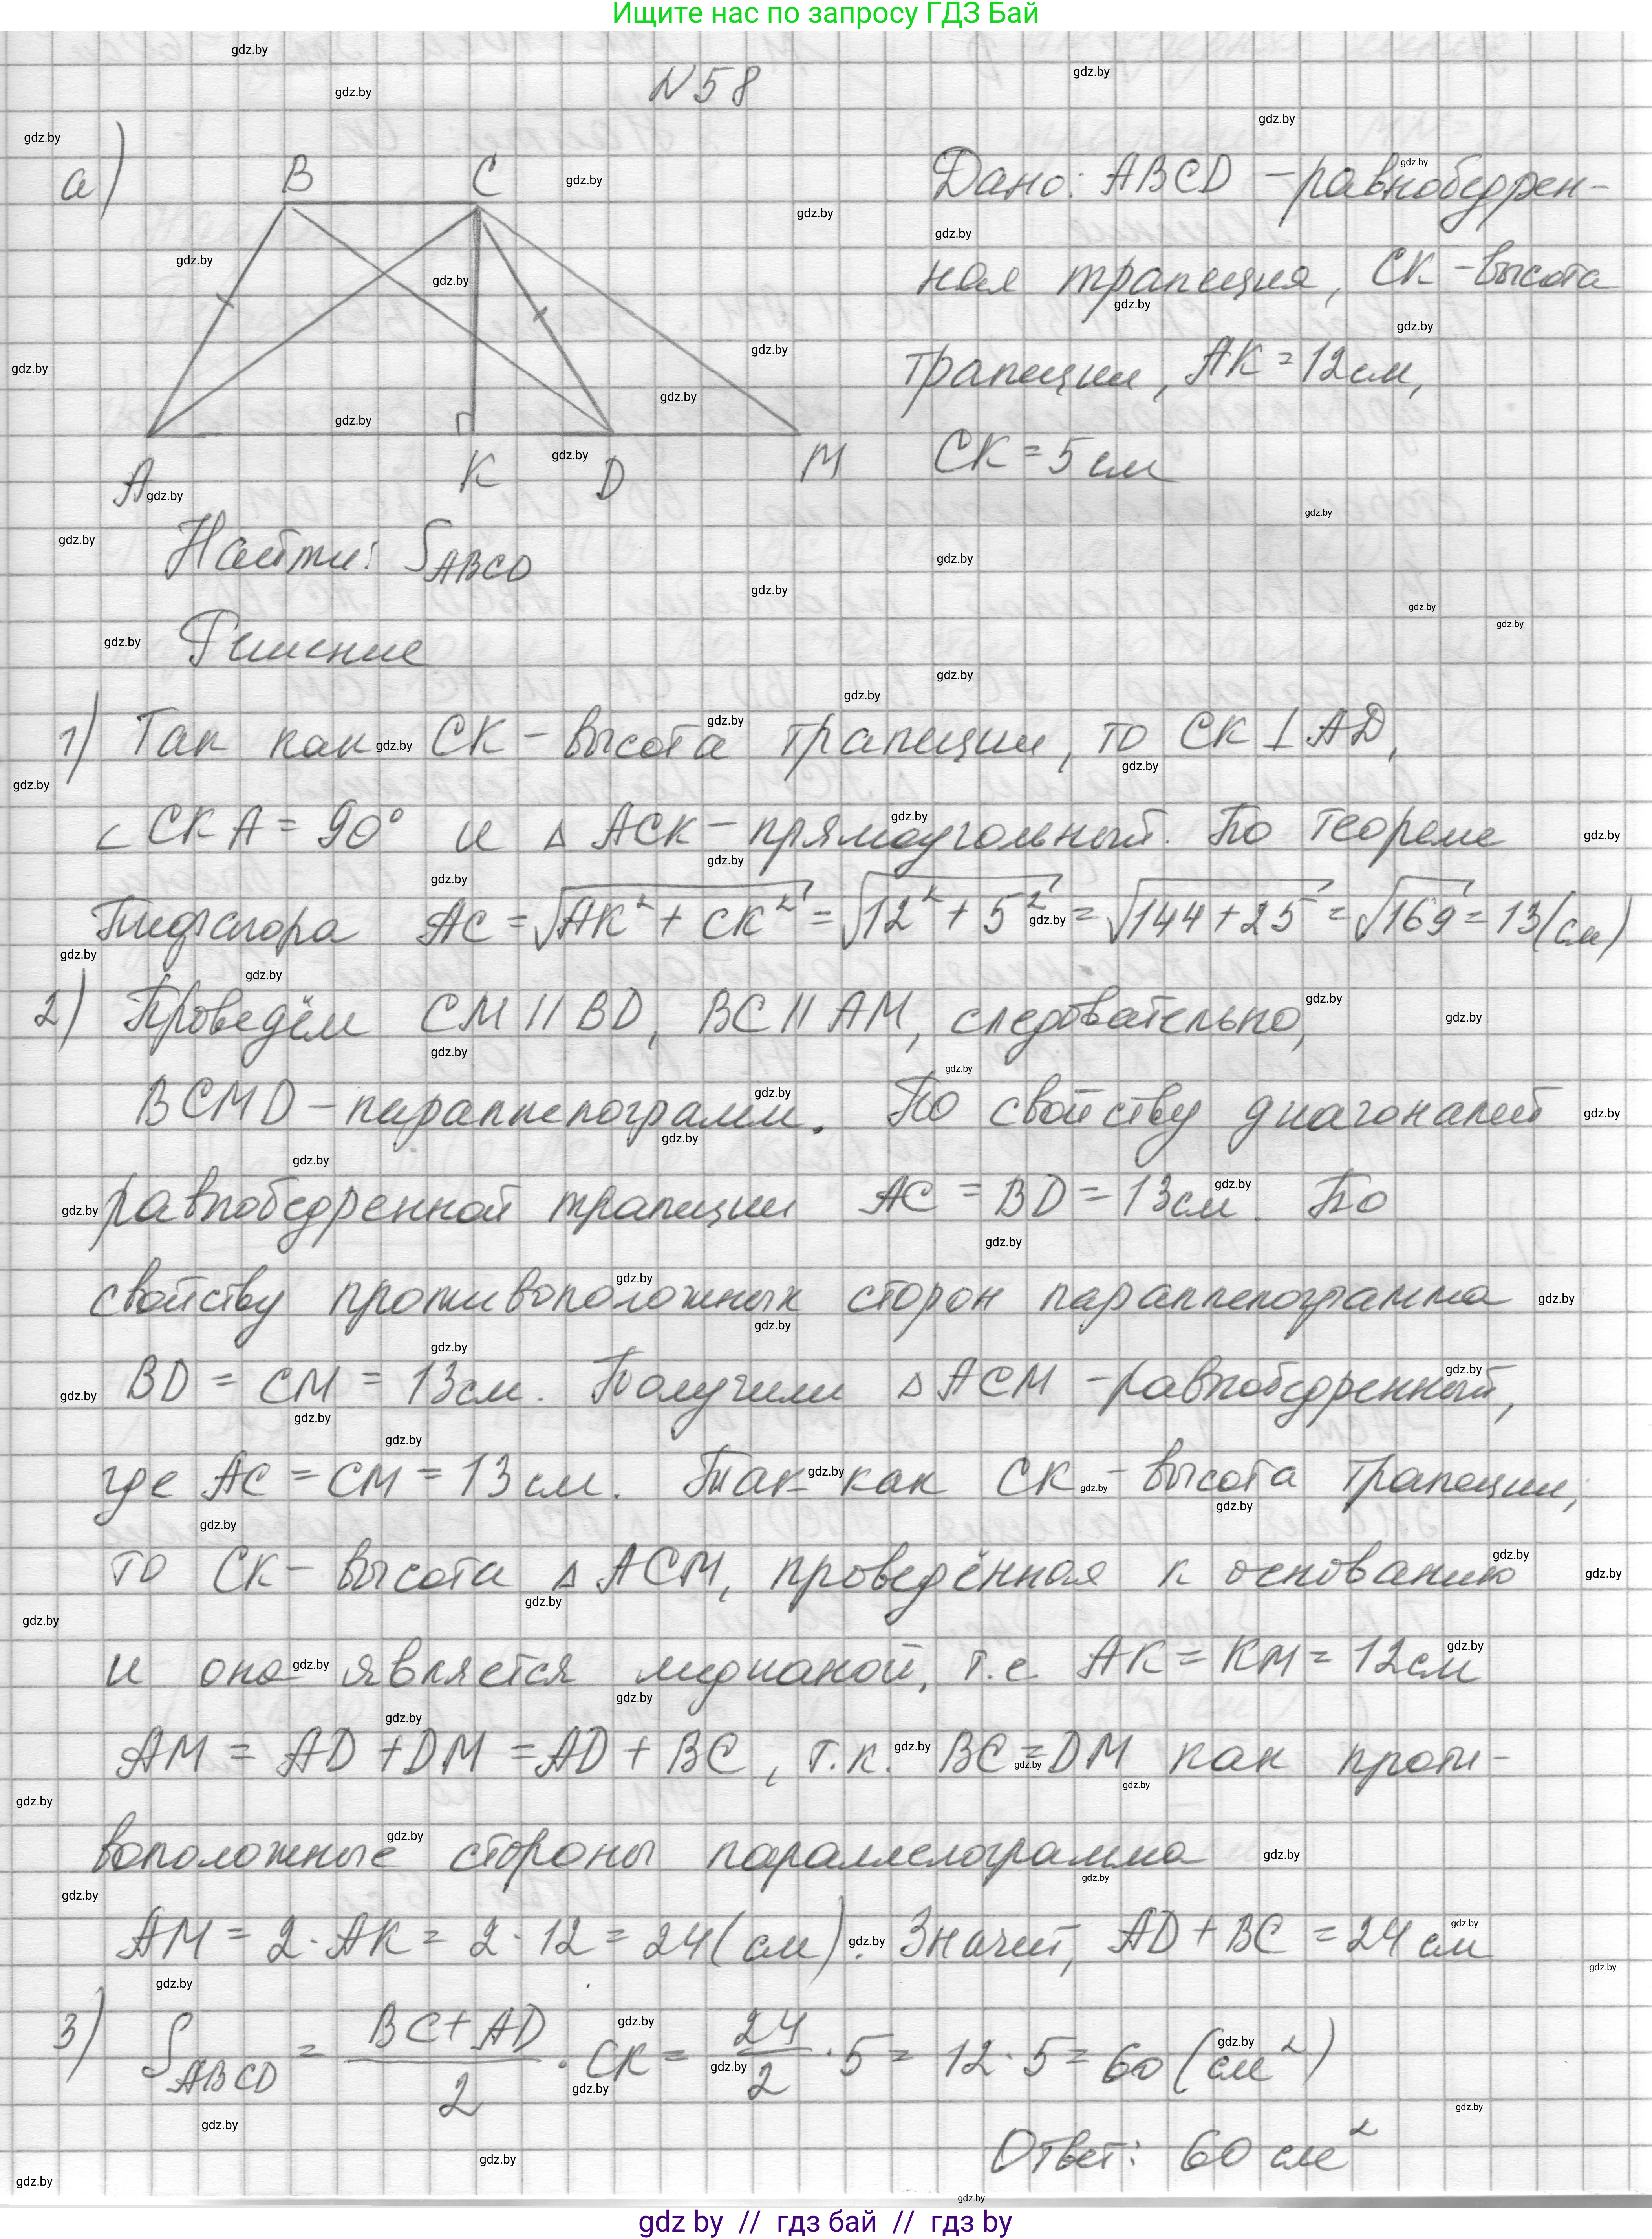 Ищите нас по запросу ГДЗ Бай
N58
а)
B C
A K D M
Дано: ABCD - равнобедрен-
ная трапеция, CK - высота
трапеции, AK = 12 см,
CK = 5 см
Найти: S_ABCD
Решение
1) Так как CK - высота трапеции, то CK ⊥ AD,
∠CKA = 90° и △ACK - прямоугольный. По теореме
Пифагора AC = √(AK² + CK²) = √(12² + 5²) = √(144 + 25) = √169 = 13 (см)
2) Проведём CM || BD, BC || AM, следовательно,
BCMD - параллелограмм. По свойству диагоналей
равнобедренной трапеции AC = BD = 13 см. По
свойству противоположных сторон параллелограмма
BD = CM = 13 см. Получили △ACM - равнобедренный,
где AC = CM = 13 см. Так как CK - высота трапеции,
то CK - высота △ACM, проведённая к основанию
и она является медианой, т.е. AK = KM = 12 см
AM = AD + DM = AD + BC, т.к. BC = DM как проти-
воположные стороны параллелограмма
AM = 2 · AK = 2 · 12 = 24 (см). Значит, AD + BC = 24 см
3) S_ABCD = (BC + AD)/2 · CK = 24/2 · 5 = 12 · 5 = 60 (см²)
Ответ: 60 см²
gdz by // гдз бай // гдз by